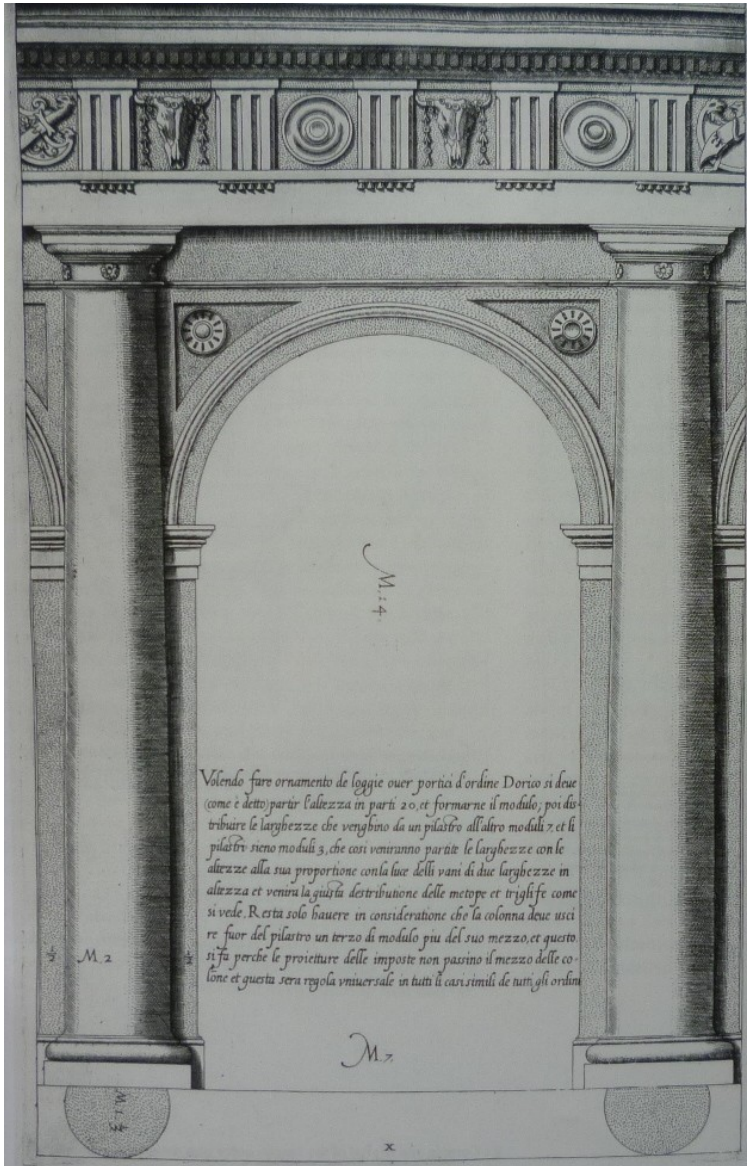 M. 14.
Volendo fare ornamento de loggie ouer portici d'ordine Dorico si deue
(come è detto) partir l'altezza in parti 20, et formarne il modulo; poi dis-
tribuire le larghezze che venghino da un pilastro all'altro moduli 7, et li
pilastri sieno moduli 3, che cosi veniranno partite le larghezze con le
altezze alla sua proportione con la luce delli vani di due larghezze in
altezza et venira la giusta destributione delle metope et triglife come
si vede. Resta solo hauere in consideratione che la colonna deue usci
re fuor del pilastro un terzo di modulo piu del suo mezzo, et questo
si fa perche le proietture delle imposte non passino il mezzo delle co-
lone et questa sera regola vniuersale in tutti li casi simili de tutti gli ordini
M. 2
M. 7.
X